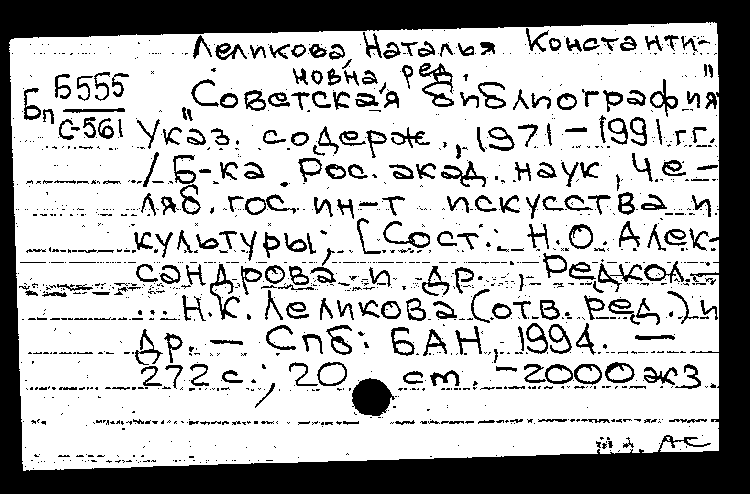 Леликова, Наталья Константи-
новна, ред.
Бп Б555
С-561
"Советская библиография"
Указ. содерж., 1971-1991 гг.
/ Б-ка Рос. акад. наук, Че-
ляб. гос. ин-т искусства и
культуры; [Сост.: Н.О. Алек-
сандрова и др.; Редкол.:
... Н.К. Леликова (отв. ред.) и
др. — Спб: БАН, 1994. —
272 с.; 20 см. - 2000 экз
АС